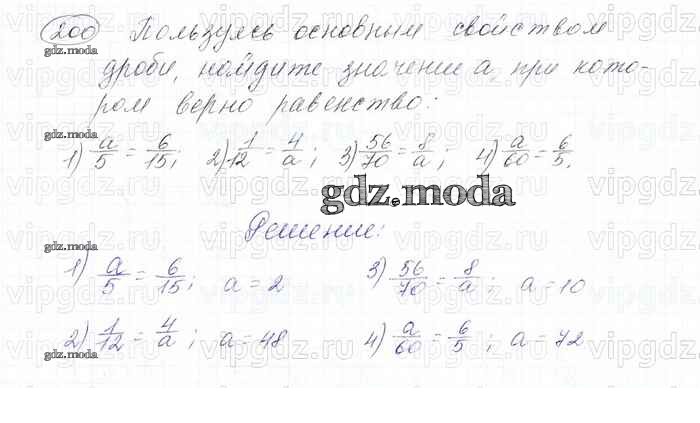 200 Пользуясь основным свойством
gdz.moda
дроби, найдите значение a, при кото-
ром верно равенство:
1) a/5 = 6/15; 2) 1/12 = 4/a; 3) 56/70 = 8/a; 4) a/60 = 6/5.
gdz.moda
Решение:
gdz.moda
1) a/5 = 6/15; a = 2 3) 56/70 = 8/a; a = 10
2) 1/12 = 4/a; a = 48 4) a/60 = 6/5; a = 72
gdz.moda
vipgdz.ru